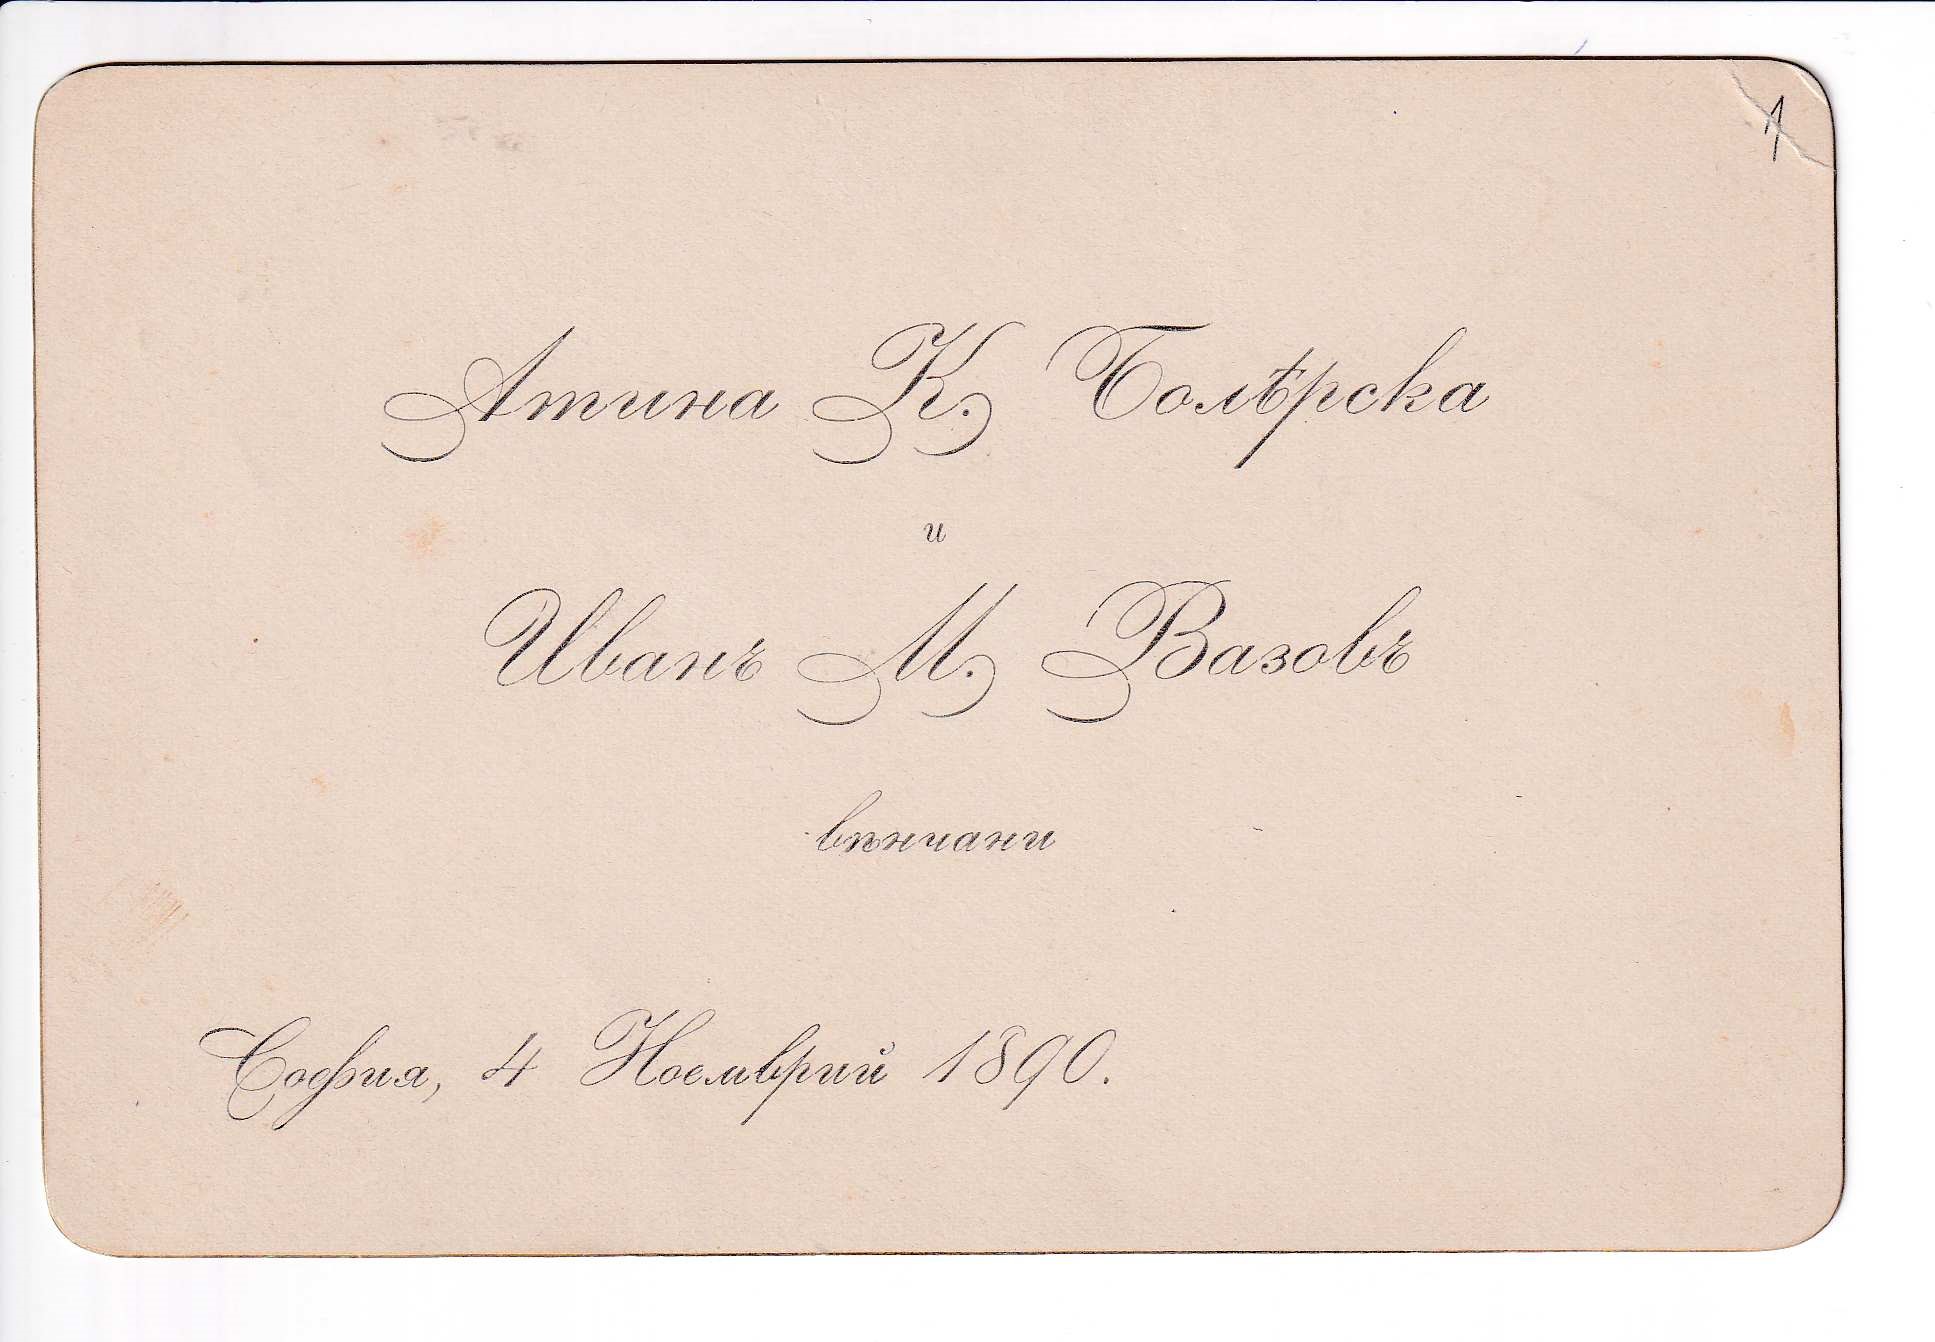 1
Атина К. Болѣрска
и
Иванъ М. Вазовъ
вѣнчани
София, 4 Ноемврий 1890.